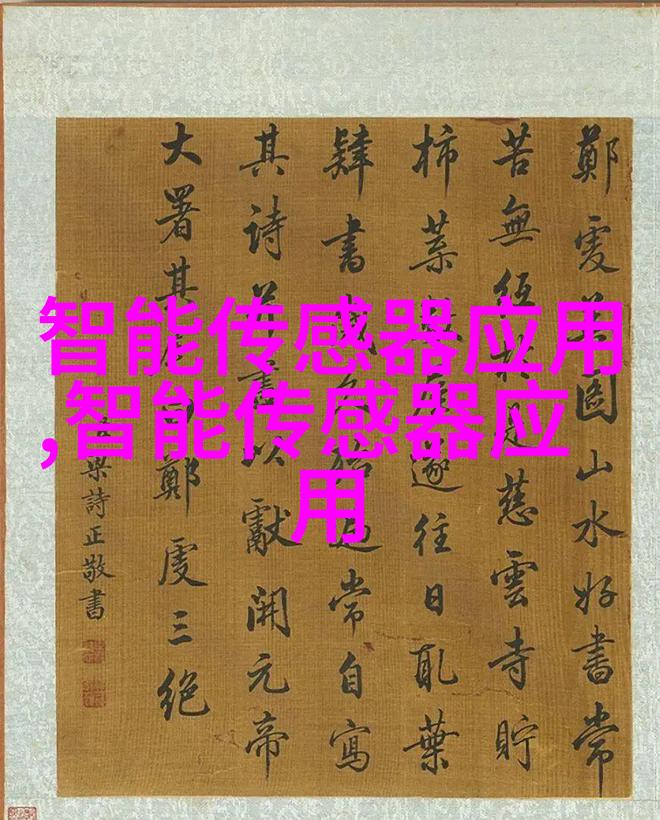 智能传感器应用
,智能传感器应
用
鄭虔圖山水好書常
苦無紙慈雲寺貯
柿葉遂往日取葉
肄書歲常自寫
其詩以獻開元帝
大署其鄭虔三絕
梁詩正敬書